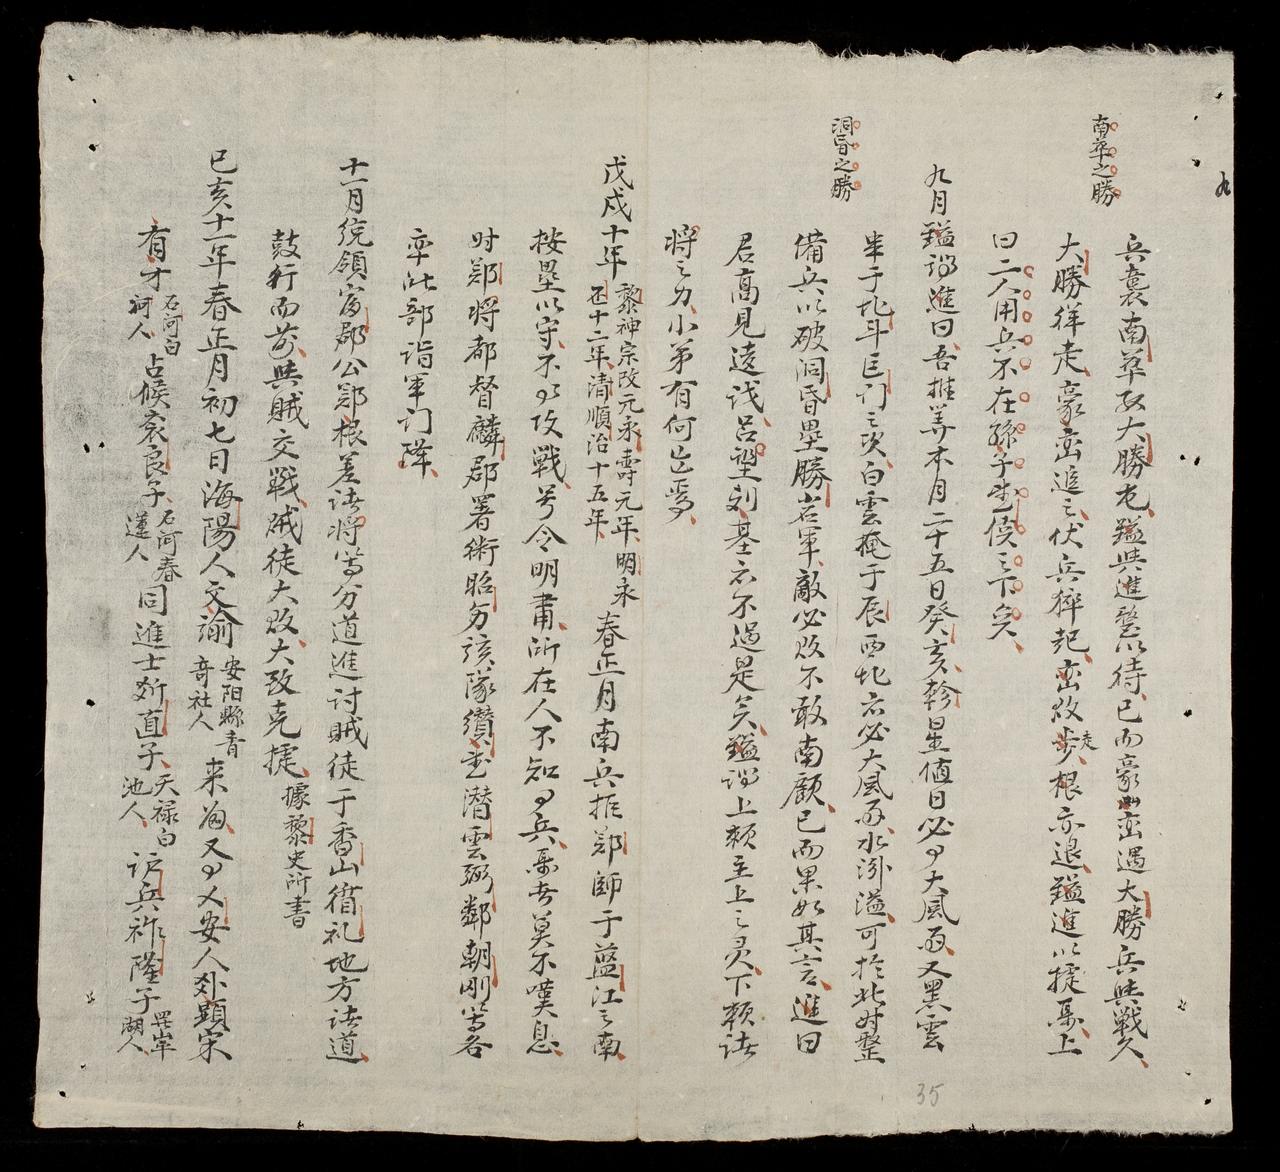 南華之勝
兵襄南華及大勝屯鎰與進整以待已而豪巒遇大勝兵與戰久
大勝徉走豪巒追之伏兵猝起巒敗走步根亦退鎰進以捷聞上
曰二人用兵不在孫子生侯之下矣
九月鎰謂進曰吾推算本月二十五日癸亥軫星值日必有大風雨又黑雲
洞昏之勝
半于北斗巨门之次白雲掩于辰酉北方必大風雨水漲溢可於此时整
備兵以破洞昏壘勝岩軍敵必敗不敢南顧已而果如其言進曰
君高見遠识吕望刘基亦不過是矣鎰謂上頼主上之灵下頼诸
将之力小弟有何与焉
戊戌十年 黎神宗改元永壽元年明永
丕十二年清順治十五年 春正月南兵拒鄭師于藍江之南
按壘以守不出攻戰号令明肅所在人不知有兵聞者莫不嘆息
时鄭将都督麟郡署術昭旁該隊纘武潜雲弼鄰朝剛等各
率此部詣軍门降
十一月統領富郡公鄭根差诸将等分道進讨賊徒于香山循礼地方诸道
鼓行而前與賊交戰賊徒大敗大致克捷 據黎史所書
已亥十一年春正月初七日海陽人文諭 安阳縣香
奇社人 来為又有乂安人外顕宋
有才 石河白
河人 占候衮良子 石河春
蓮人 同進士斫直子 天禄白
池人 護兵祚隆子 羅岸
湖人
35